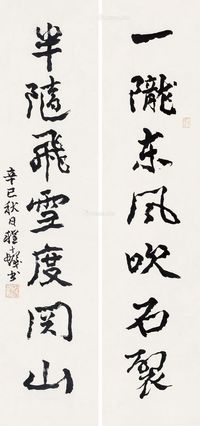 一陇东风吹石裂
半随飛雪度関山
辛巳秋日
書